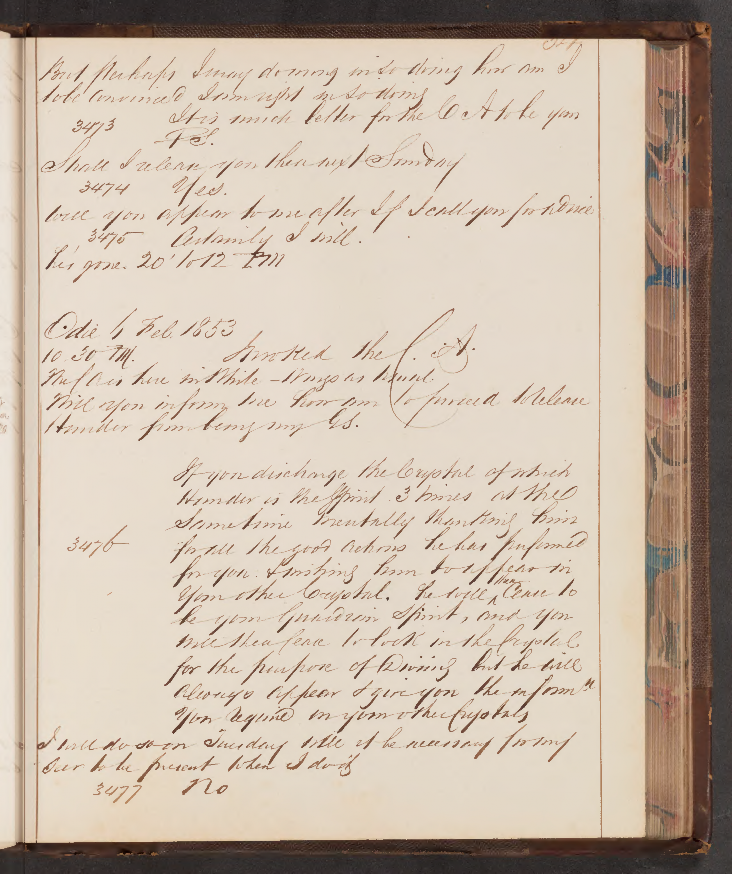 But perhaps I may do wrong in so doing how am I
to be convinced I am right in so doing
3473 It is much better for the C A to be your
G S.
Shall I release you then next Sunday
3474 Yes.
Will you appear to me after If I call you for advice
3475 Certainly I will.
he's gone. 20' to 12 PM
Die 4 Feb 1853
10.30 PM. Invoked the C. A.
The C A is here in White - Wings as usual.
Will you inform me how am I to proceed to Release
Hunder from being my G S.
If you discharge the Crystal of which
Hunder is the Spirit 3 times at the
same time mentally thanking him
3476 for all the good actions he has performed
for you. & wishing him to appear in
your other Crystal. he will then cease to
be your Guardian Spirit, and you
will then cease to look in the Crystal
for the purpose of Divining but he will
always appear & give you the informn
you require in your other Crystals
I will do so on Tuesday will it be necessary for my
Seer to be present when I do it
3477 No